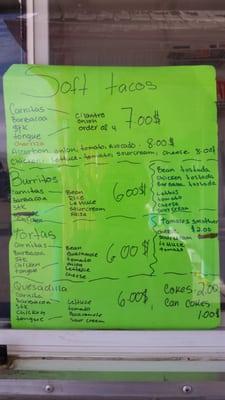 Soft tacos
Carnitas
Barbacoa
STK
tongue
Chorizo
cilantro
onion
order of 4
7.00$
onion, tomato, Avocado, 8.00$
Chicken, Lettuce, tomato, sour cream, Cheese 8.00$
Burritos
Carnitas
Barbacoa
STK
Chicken
Bean
Rice
Lettuce
Sour cream
6.00$
Bean tostada
Chicken tostada
Barbacoa tostada
Lettuce
tomato
Cheese
Sour cream
Tamales
$2.00
Sour cream
Lettuce
tomato
Tortas
Carnitas
Barbacoa
STK
Chicken
tongue
Bean
Guacamole
tomato
onion
Lettuce
Cheese
6.00$
Quesadilla
Carnita
Barbacoa
STK
Chicken
tongue
Lettuce
tomato
Guacamole
Sour cream
6.00$
Cokes 2.00
Can Cokes
1.00$